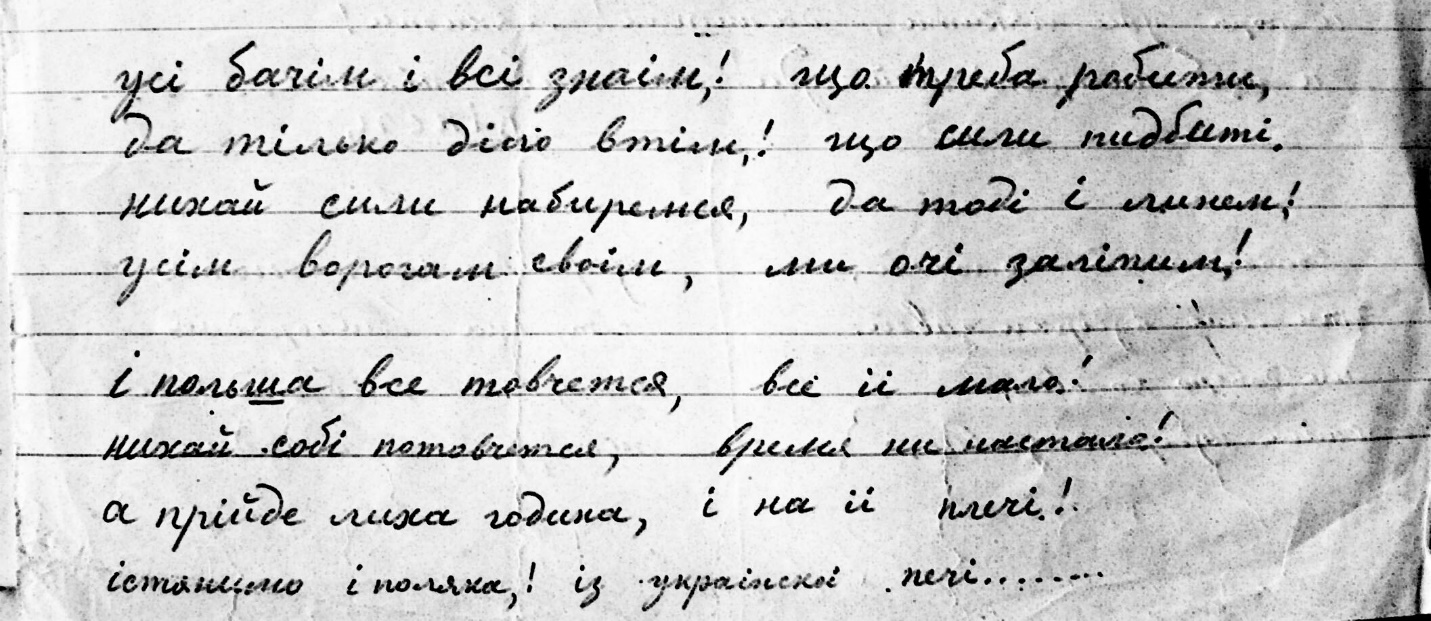 усі бачім і всі знаім,! що треба робити,
да тілько діло втім,! що сили пидбиті.
нихай сили набиремся, да тоді і линем!
усім ворогам своім, ми очі заліпим!
і польша все товчется, все іі мало!
нихай собі потовчется, время ни настало!
а прійде лиха година, і на іі плечі!
істянимо і поляка,! із украінскоі печі........